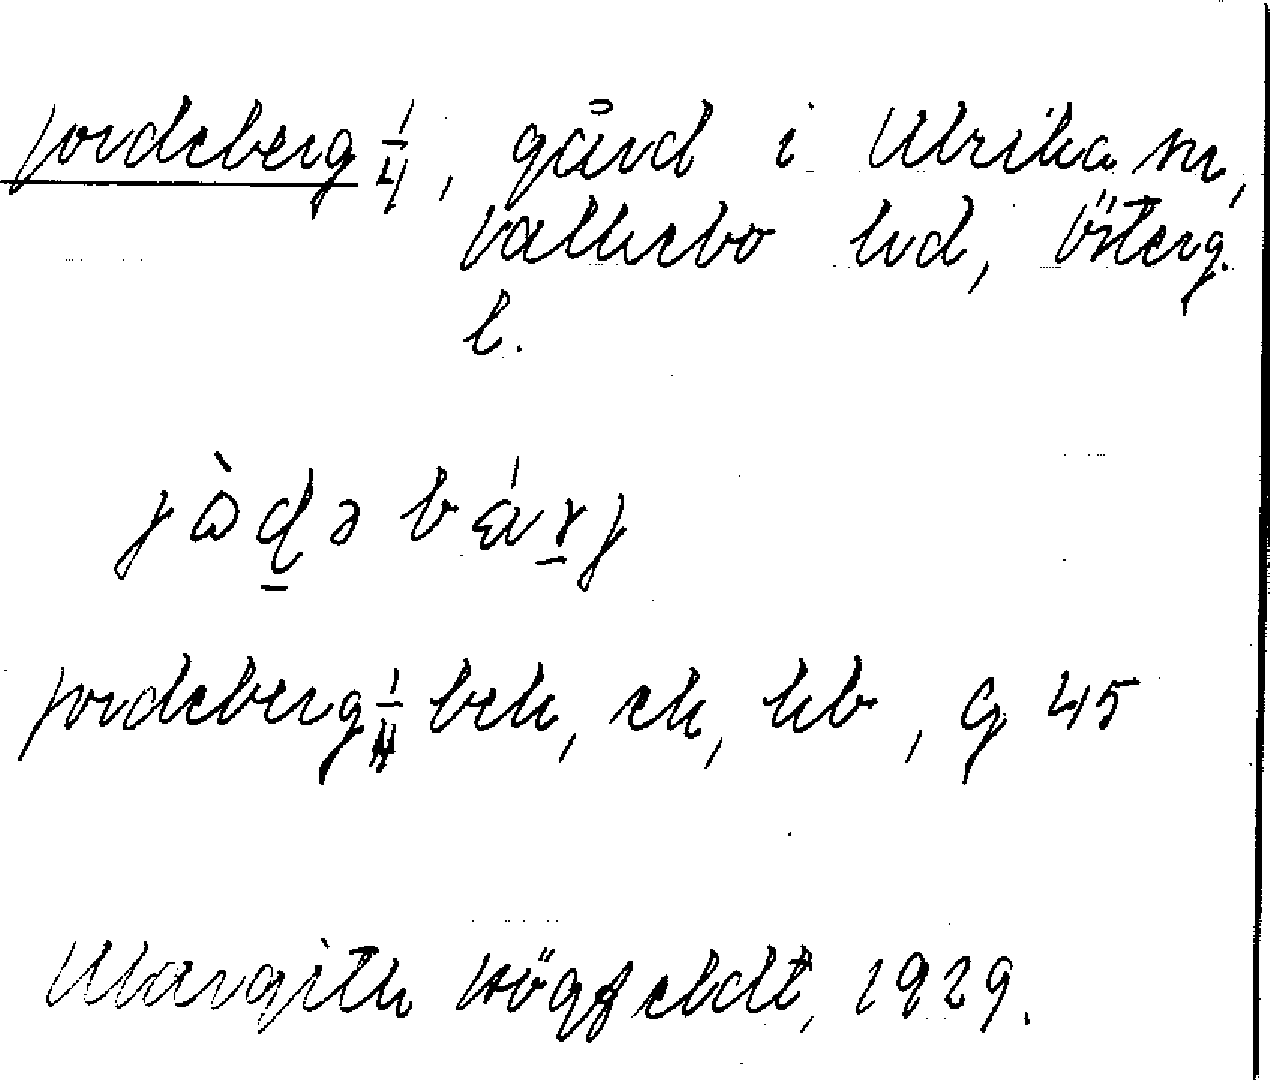 Jordeberg 1/4, gård i Ulrika sn,
Valkebo hd, Österg.
l.
jɷ̀ḏə bǽɹj
Jordeberg 1/4 bek, ek, kb, G 45
Margith Högfeldt, 1929.